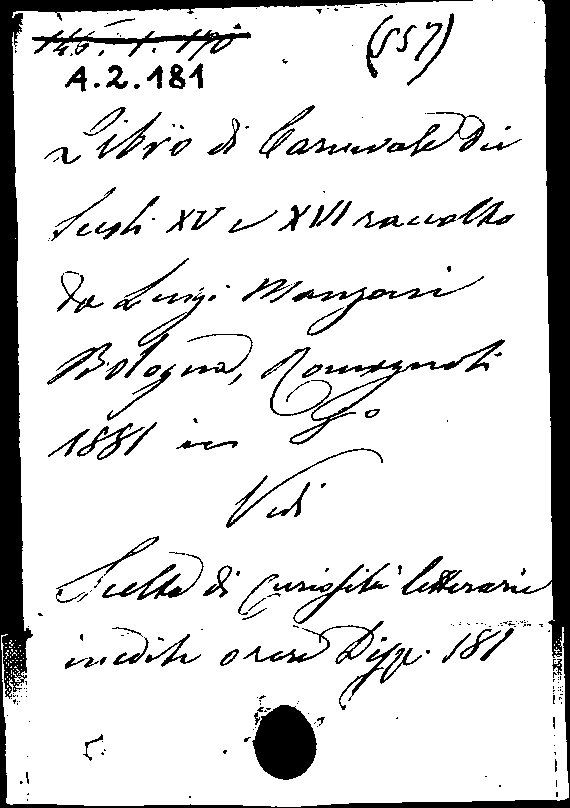 146. 1. 190 (557)
A.2.181
Libro di Carnevale dei
Secoli XV e XVI raccolto
da Luigi Manzoni
Bologna, Romagnoli
1881 in 8o
Vedi
Scelta di curiosità letterarie
inedite o rare Disp. 181